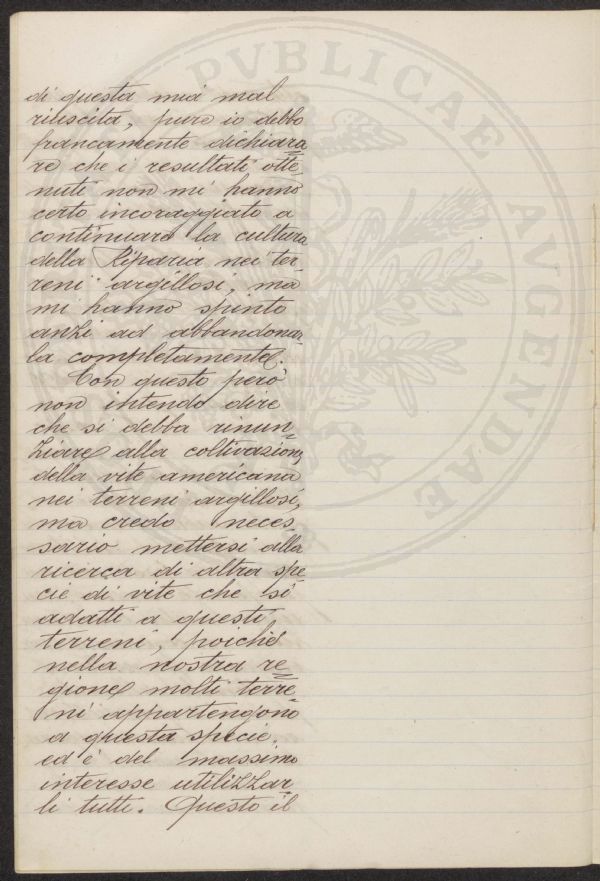 di questa mia mal
riuscita, pure io debbo
francamente dichiara
re che i resultati otte
nuti non mi hanno
certo incoraggiato a
continuare la cultura
della Riparia nei ter
reni argillosi, ma
mi hanno spinto
anzi ad abbandonar
la completamente.
Con questo però
non intendo dire
che si debba rinun=
ziare alla coltivazione
della vite americana
nei terreni argillosi,
ma credo neces
sario mettersi alla
ricerca di altra spe
cie di vite che si
adatti a questi
terreni, poichè
nella nostra re
gione molti terre
ni appartengono
a questa specie.
ed è del massimo
interesse utilizzar
li tutti. Questo il
PVBLICAE AVGENDAE